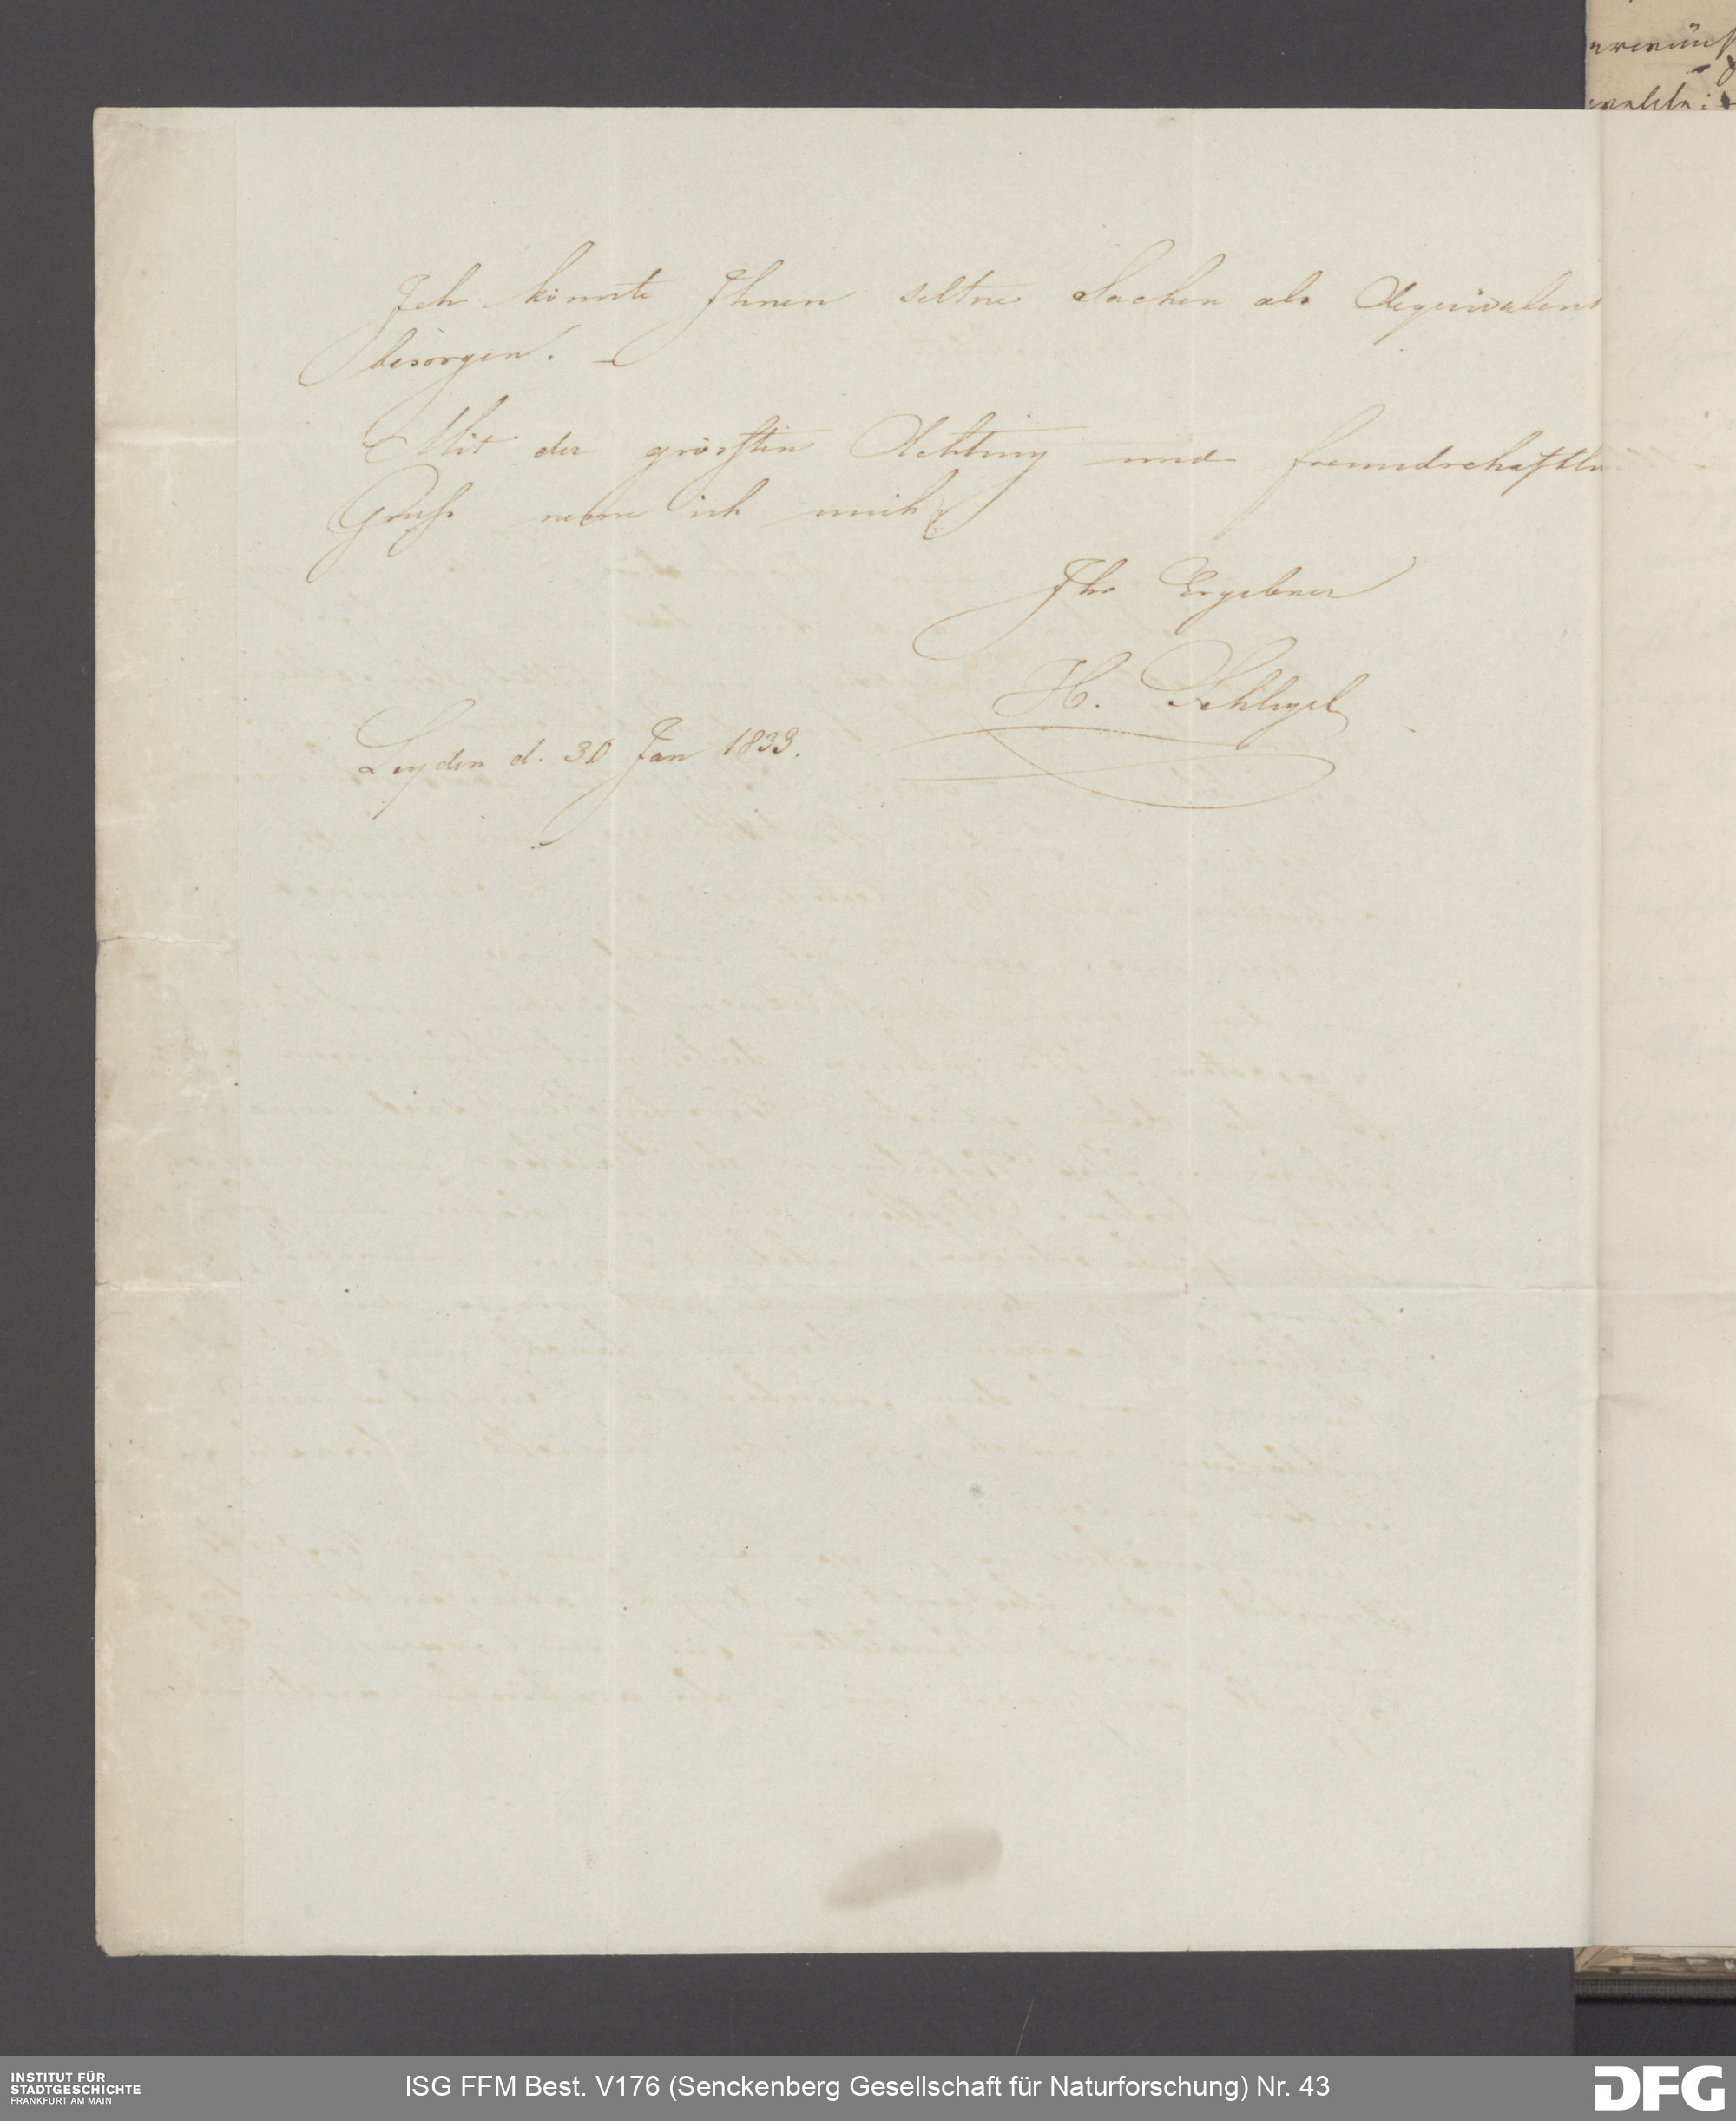 Ich könnte Ihnen seltne Sachen als Aequivalent
besorgen. –
Mit der grössten Achtung und freundschaftln
Gruß nenne ich mich
Ihr Ergebner
H. Schlegel
Leyden d. 30 Jan 1833.
INSTITUT FÜR
STADTGESCHICHTE
FRANKFURT AM MAIN
ISG FFM Best. V176 (Senckenberg Gesellschaft für Naturforschung) Nr. 43
DFG